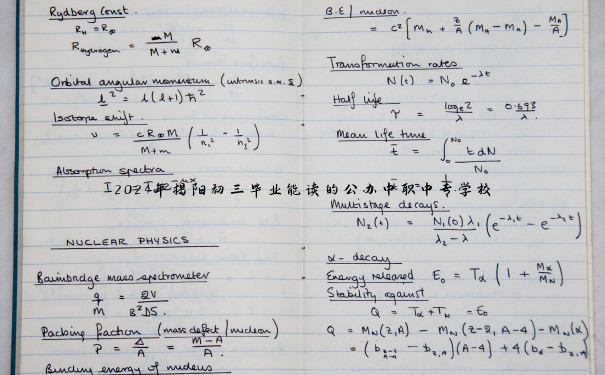 Rydberg Const.
R_H = R_∞
R_Hydrogen = M / (M + m) R_∞
Orbital angular momentum (intrinsic a.m. s)
l² = l(l+1)ħ²
Isotope shift.
ν = cR_∞M / (M+m) (1/n₁² - 1/n₂²)
Absorption spectra
2024年揭阳初三毕业能读的公办中职中专学校
NUCLEAR PHYSICS
Bainbridge mass spectrometer
q/m = 2V / B²DS.
Packing fraction (mass defect/nucleon)
P = Δ/A = (M-A)/A.
Binding energy of nucleus
B.E / nucleon.
= c² [M_n + Z/A (M_H - M_n) - M_A/A]
Transformation rates
N(t) = N₀ e^-λt
Half life
τ = log_e2 / λ = 0.693 / λ.
Mean life time
t̄ = ∫₀^N₀ t dN / N₀
Multistage decays.
N₂(t) = N₁(0)λ₁ / (λ₂-λ) (e^-λ₁t - e^-λ₂t)
α- decay
Energy released E₀ = T_α (1 + M_α/M_N)
Stability against
Q = T_α + T_N = E₀
Q = M_N(Z,A) - M_N(Z-2,A-4) - M_N(α)